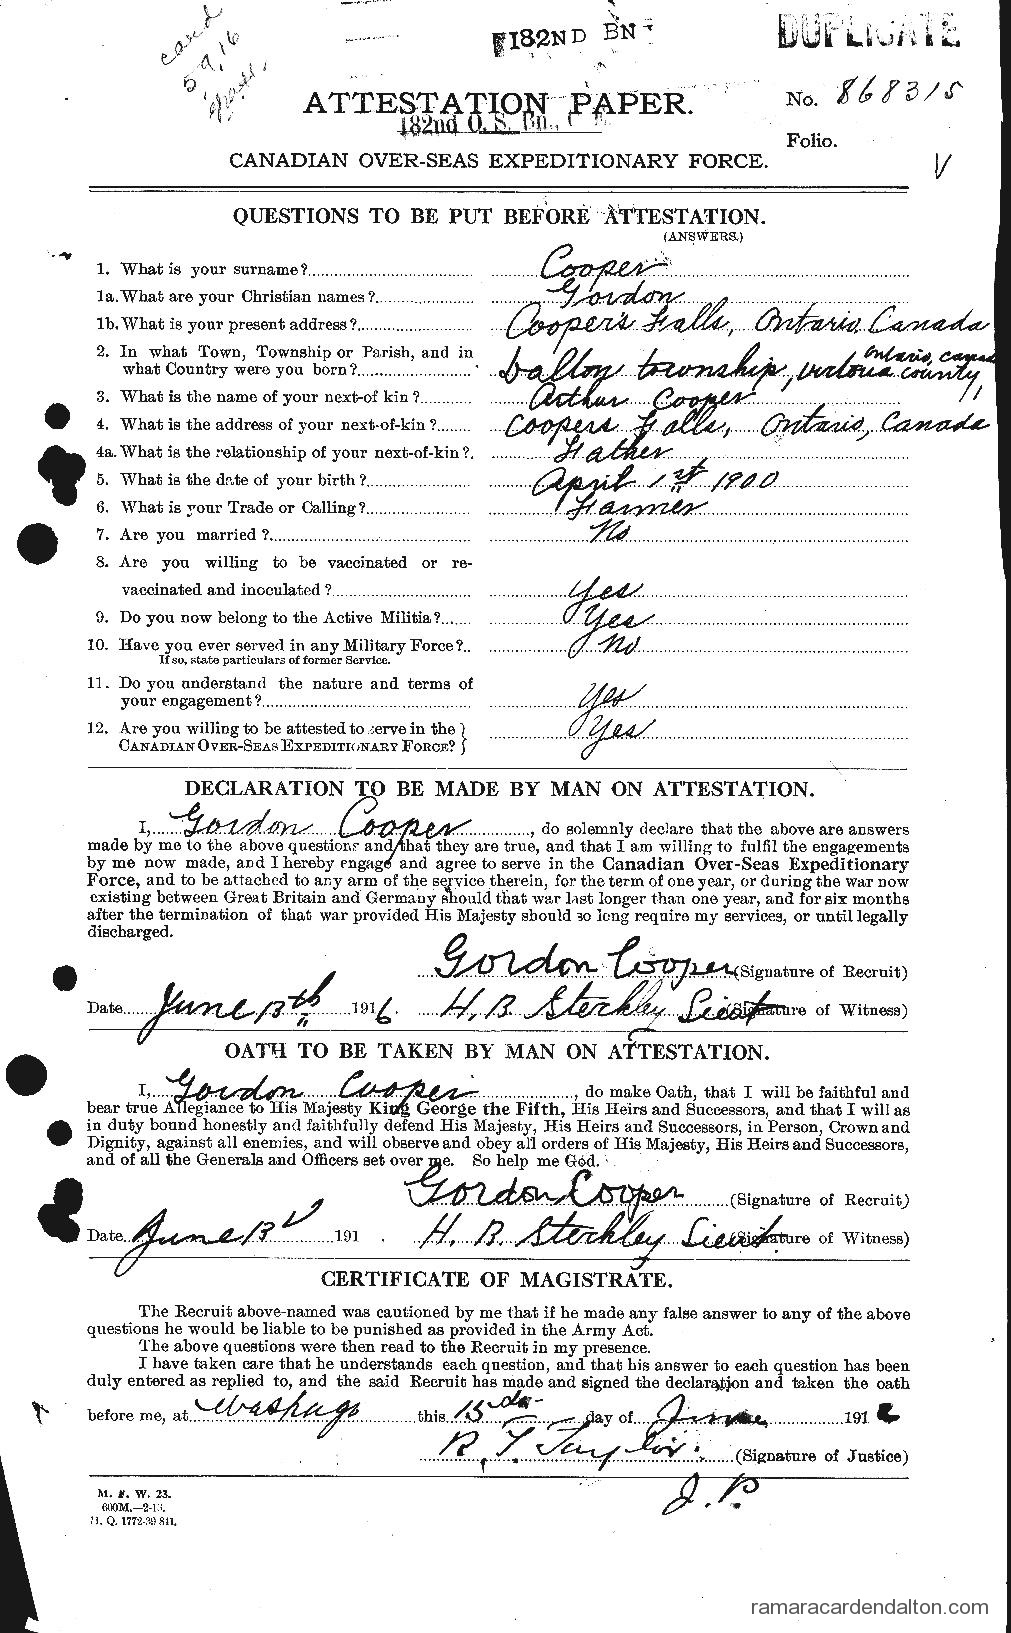 card
5.9.16
182ND BN
DUPLICATE
No. 868315
ATTESTATION PAPER.
182nd O. S. Bn., C. E. F.
Folio.
CANADIAN OVER-SEAS EXPEDITIONARY FORCE.
V
QUESTIONS TO BE PUT BEFORE ATTESTATION.
(ANSWERS.)
1. What is your surname? Cooper
1a. What are your Christian names? Gordon
1b. What is your present address? Cooper's Falls, Ontario, Canada
2. In what Town, Township or Parish, and in
what Country were you born? Dalton township, Victoria county, Ontario, Canada
3. What is the name of your next-of kin? Arthur Cooper
4. What is the address of your next-of-kin? Coopers Falls, Ontario, Canada
4a. What is the relationship of your next-of-kin? Father
5. What is the date of your birth? April 1st 1900
6. What is your Trade or Calling? Farmer
7. Are you married? No
8. Are you willing to be vaccinated or re-
vaccinated and inoculated? Yes
9. Do you now belong to the Active Militia? Yes
10. Have you ever served in any Military Force? No
If so, state particulars of former Service.
11. Do you understand the nature and terms of
your engagement? Yes
12. Are you willing to be attested to serve in the
CANADIAN OVER-SEAS EXPEDITIONARY FORCE? Yes
DECLARATION TO BE MADE BY MAN ON ATTESTATION.
I, Gordon Cooper, do solemnly declare that the above are answers
made by me to the above questions and that they are true, and that I am willing to fulfil the engagements
by me now made, and I hereby engage and agree to serve in the Canadian Over-Seas Expeditionary
Force, and to be attached to any arm of the service therein, for the term of one year, or during the war now
existing between Great Britain and Germany should that war last longer than one year, and for six months
after the termination of that war provided His Majesty should so long require my services, or until legally
discharged.
Gordon Cooper (Signature of Recruit)
Date June 13th 1916. H. B. Sterkley Lieut (Signature of Witness)
OATH TO BE TAKEN BY MAN ON ATTESTATION.
I, Gordon Cooper, do make Oath, that I will be faithful and
bear true Allegiance to His Majesty King George the Fifth, His Heirs and Successors, and that I will as
in duty bound honestly and faithfully defend His Majesty, His Heirs and Successors, in Person, Crown and
Dignity, against all enemies, and will observe and obey all orders of His Majesty, His Heirs and Successors,
and of all the Generals and Officers set over me. So help me God.
Gordon Cooper (Signature of Recruit)
Date June 13 191 . H. B. Sterkley Lieut. (Signature of Witness)
CERTIFICATE OF MAGISTRATE.
The Recruit above-named was cautioned by me that if he made any false answer to any of the above
questions he would be liable to be punished as provided in the Army Act.
The above questions were then read to the Recruit in my presence.
I have taken care that he understands each question, and that his answer to each question has been
duly entered as replied to, and the said Recruit has made and signed the declaration and taken the oath
before me, at Washago this 13 day of June 1916
R. T. Taylor. (Signature of Justice)
J. P.
M. F. W. 23.
600M.—2-16.
H. Q. 1772-39 841.
ramaracardendalton.com